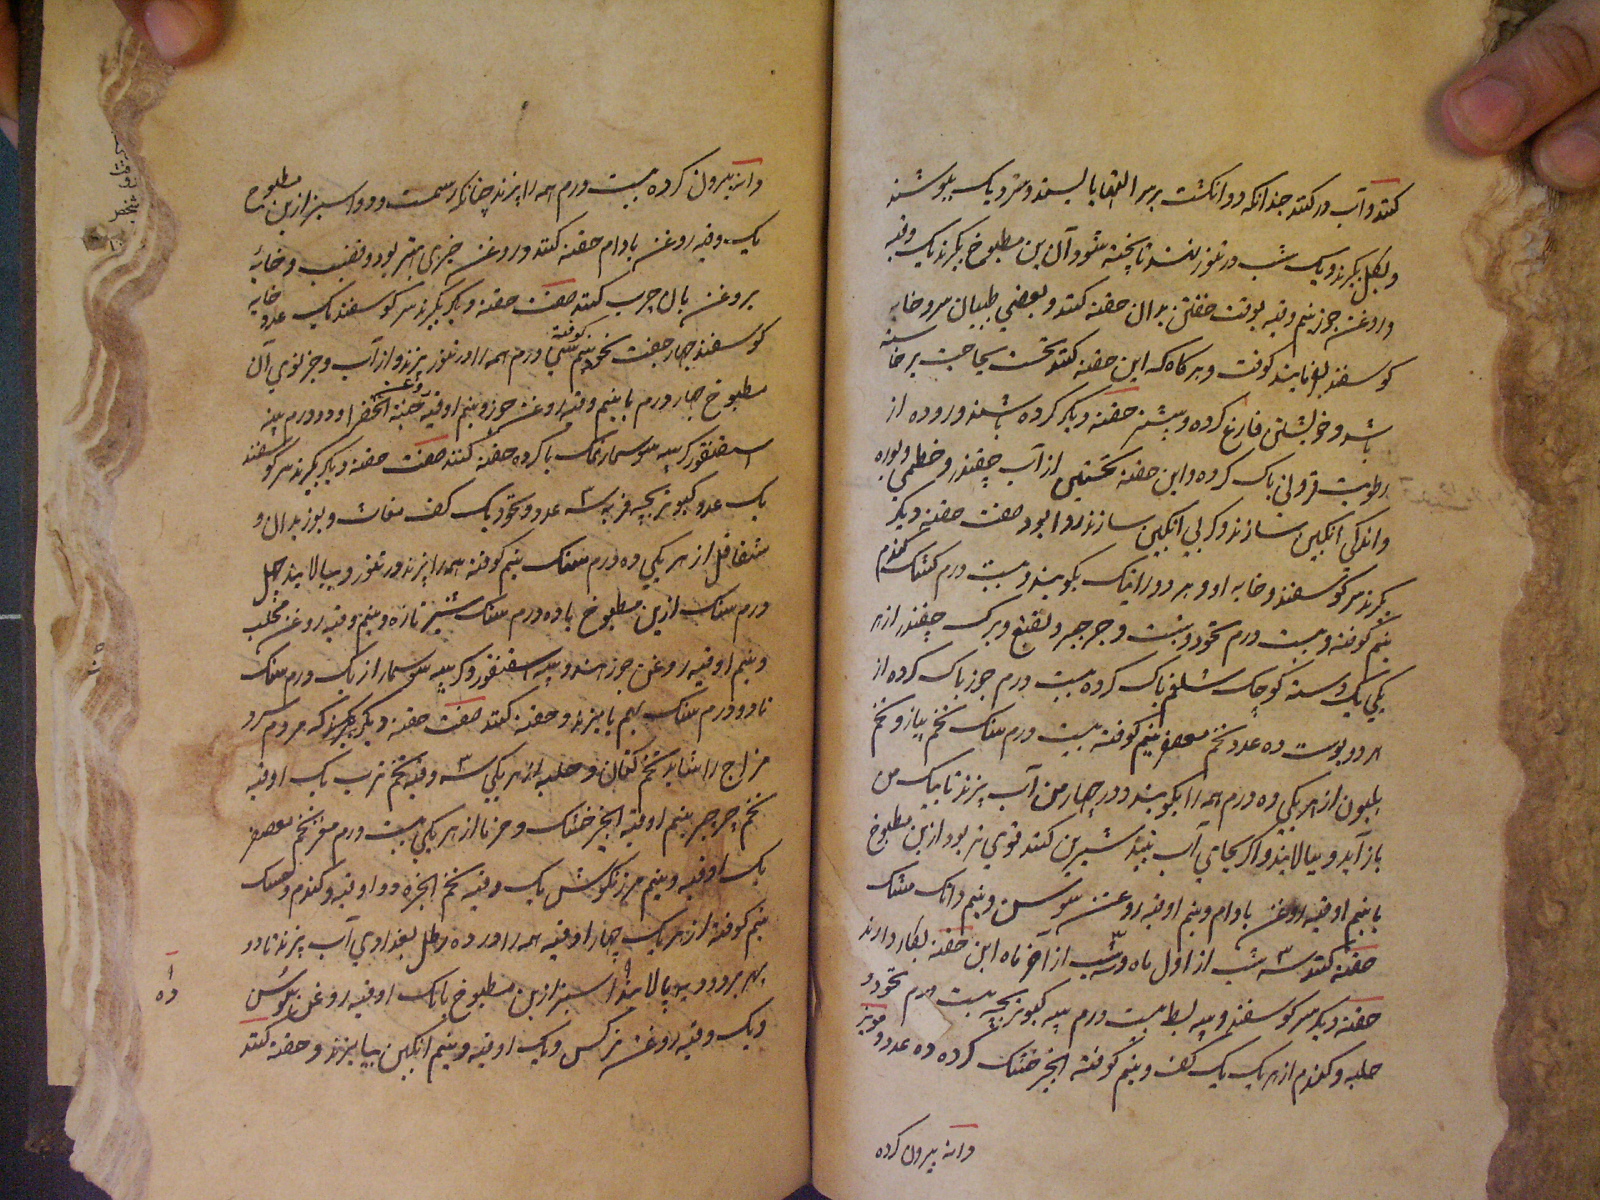 کنند و آب در کنند چندانکه دو انکشت برسر ایستد و سر دیک بپوشند
و بکل بکیرند و یک شب در تنور نهند تا پخته شود آن این مطبوخ بکیرند یک وقیه
و روغن جوز نیم وقیه بوقت خفتن بدان حقنه کنند و بعضی طبیبان سر و خایه
کوسفند بفرمایند کوفت و هرکاه که این حقنه کنند نخست بحاجت برخاسته
باشد و خویشتن فارغ کرده و پیشتر حقنه دیکر کرده باشند و روده از
رطوبت پاک کرده و این حقنه نخستین از آب چغندر و خطمی و بوره
و اندکی انکبین سازند و کر بی انکبین سازند روا بود صفت حقنه دیکر
بکیرند سر کوسفند و خایه او و هر دو را نیک بکوبند و بیست درم کشک کندم
نیم کوفته و بیست درم نخود و شبت و جرجیر و نعنع و برک چغندر از هر
یکی یک دسته کوچک شلغم پاک کرده بیست درم جوز پاک کرده از
هر دو پوست ده عدد تخم معصفر نیم کوفته بیست درم سنک تخم پیاز و تخم
هلیون از هر یکی ده درم همه را بکوبند و در چهار من آب بپزند تا بیک من
بازآید و بپالایند و اکر بجای آب نبیذ شیرین کنند قوی تر بود ازین مطبوخ
با نیم اوقیه روغن بادام و نیم اوقیه روغن سوسن و نیم دانک مشک
حقنه کنند سه شب از اول ماه و سه شب از آخر ماه این حقنه بکار دارند
حقنه دیکر سر کوسفند و پیه بط بیست درم پیه کبوتر بچه بیست درم نخود و
حلبه و کندم از هر یک یک کف و نیم کوفته انجیر خشک کرده ده عدد و مویز
دانه بیرون کرده
دانه بیرون کرده بیست درم همه را بپزند چنانکه رسمست و دو استیر ازین مطبوخ
یک وقیه روغن بادام حقنه کنند و روغن خیری بهتر بود و قضیب و خایه
بروغن بان چرب کنند صفت حقنه دیکر بکیرند سر کوسفند یک عدد خایه
کوسفند چهار جفت نخود نیم کوفته سی درم همه را در تنور بپزند و از آب و چربوی آن
مطبوخ چهار درم با نیم وقیه روغن جوز و نیم اوقیه روغن حبة الخضرا و دو درم پیه
اسقنقور کر پیه سوسمار نمک یا کرده حقنه کنند صفت حقنه دیکر بکیرند سر کوسفند
یک عدد کبوتر بچه فربه سه عدد و نخود یک کف مغاث و بوزیدان و
شقاقل از هر یکی ده درم سنک نیم کوفته همه را بپزند در تنور و بپالایند چهل
درم سنک ازین مطبوخ با ده درم سنک شیر تازه و نیم وقیه روغن محلب
و نیم اوقیه روغن جوز هندو پیه سقنقور و کر پیه سوسمار از یک درم سنک
تا دو درم سنک بهم بامیزند و حقنه کنند صفت حقنه دیکر بکیرند که مردم سرد
مزاج را شاید تخم کتان و حلبه از هر یکی سه وقیه تخم ترب یک اوقیه
تخم جرجیر نیم اوقیه انجیر خشک و خرما از هر یکی بیست درم مغز تخم معصفر
یک اوقیه و نیم مرزنکوش یک وقیه تخم انجره دو اوقیه و کندم و کشک
نیم کوفته از هر یک چهار اوقیه همه را در ده رطل بغدادی آب بپزند تا دو
بهر برود و بپالایند و ده استیر ازین مطبوخ با یک اوقیه روغن سوسن
و یک وقیه روغن نرکس و یک اوقیه و نیم انکبین بیامیزند و حقنه کنند
ده